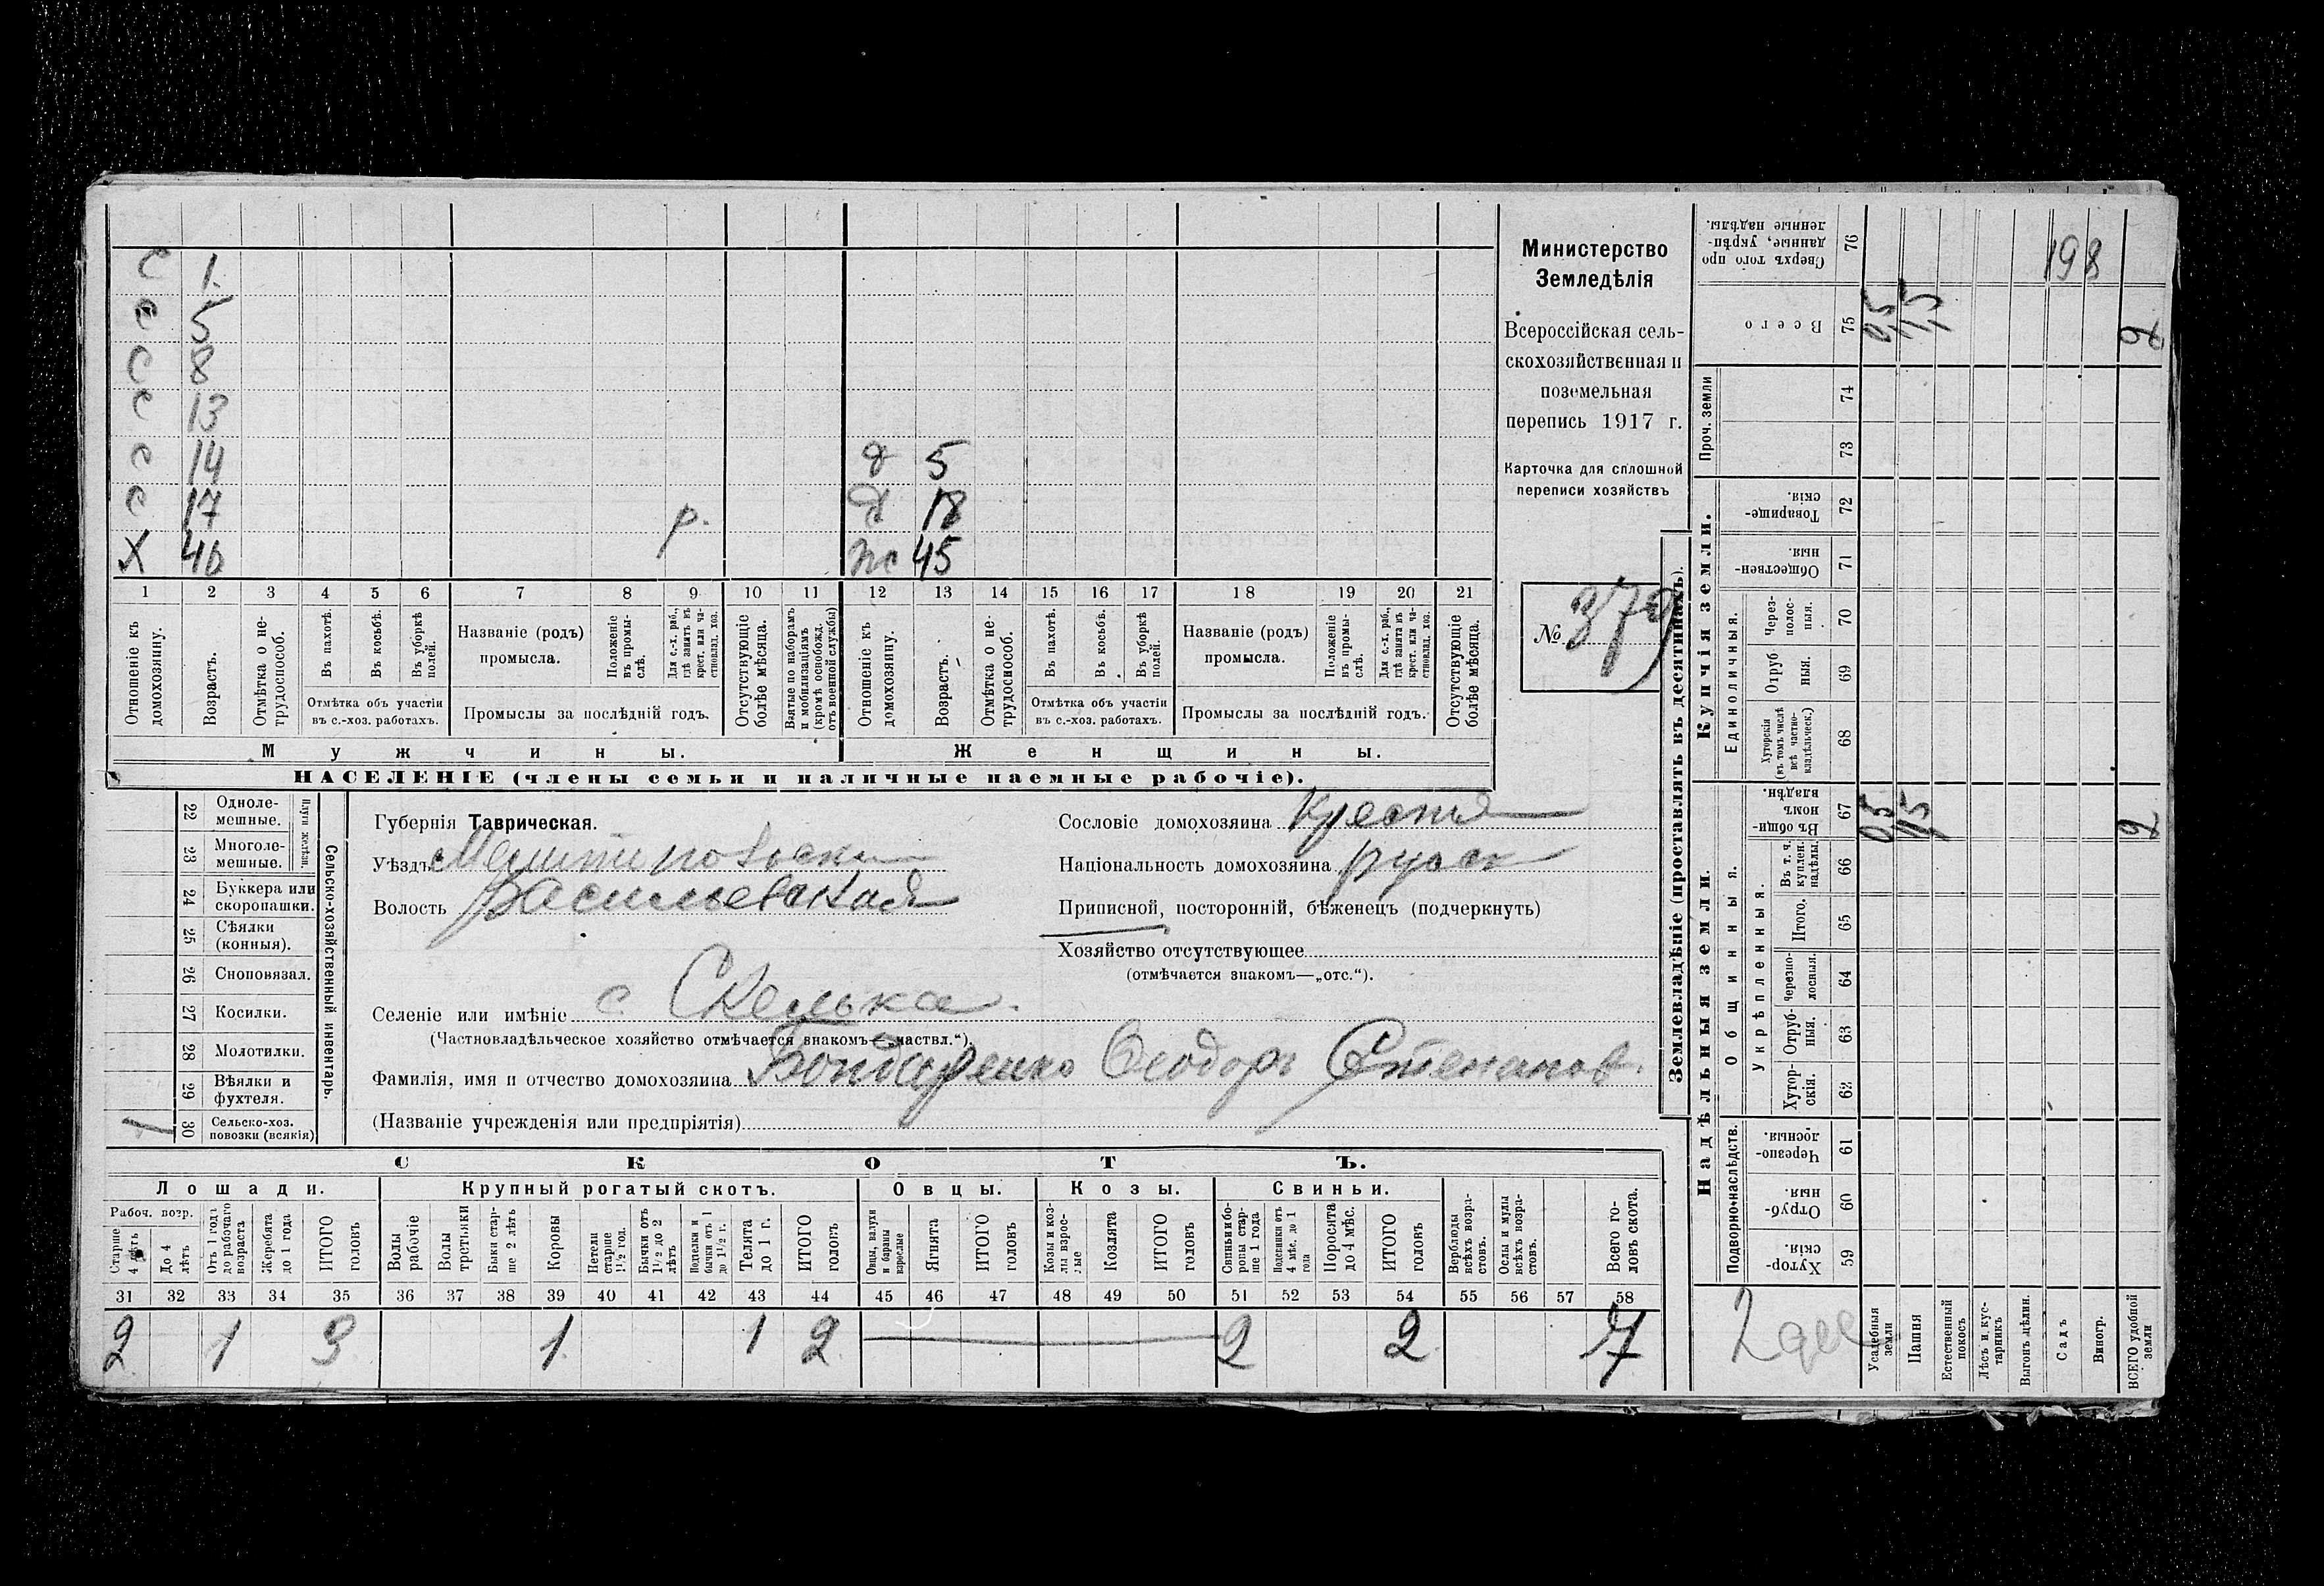 С 1.
С 5
С 8
С 13
С 14 д 5
С 17 р. д 18
Х 46 ж 45
1 2 3 4 5 6 7 8 9 10 11 12 13 14 15 16 17 18 19 20 21
Отношеніе къ домохозяину.
Возрастъ.
Отмѣтка о нетрудоспособ.
Въ пахотѣ.
Въ косьбѣ.
Въ уборкѣ полей.
Отмѣтка объ участіи въ с.-хоз. работахъ.
Названіе (родъ) промысла.
Положеніе въ промыслѣ.
Для с.-х. раб., гдѣ занятъ въ крест. или частновлад. хоз.
Промыслы за послѣдній годъ.
Отсутствующіе болѣе мѣсяца.
Взятые по наборамъ и мобилизаціямъ (кромѣ освобожд. отъ военной службы)
Отношеніе къ домохозяину.
Возрастъ.
Отмѣтка о нетрудоспособ.
Въ пахотѣ.
Въ косьбѣ.
Въ уборкѣ полей.
Отмѣтка объ участіи въ с.-хоз. работахъ.
Названіе (родъ) промысла.
Положеніе въ промыслѣ.
Для с.-х. раб., гдѣ занята въ крест. или частновлад. хоз.
Промыслы за послѣдній годъ.
Отсутствующіе болѣе мѣсяца.
Мужчины.
Женщины.
НАСЕЛЕНІЕ (члены семьи и наличные наемные рабочіе).
Министерство
Земледѣлія
Всероссійская сель-
скохозяйственная и
поземельная
перепись 1917 г.
Карточка для сплошной
переписи хозяйствъ
№ 379
22 Одноле-мешные.
23 Многоле-мешные.
Плуги желѣзн.
24 Буккера или скоропашки.
25 Сѣялки (конныя).
26 Сноповязал.
27 Косилки.
28 Молотилки.
29 Вѣялки и фухтеля.
1 30 Сельско-хоз. повозки (всякія)
Сельско-хозяйственный инвентарь.
Губернія Таврическая.
Уѣздъ Мелитопольски
Волость Васильевская
Селеніе или имѣніе с Скелька.
(Частновладѣльческое хозяйство отмѣчается знакомъ—„частвл.“).
Фамилія, имя и отчество домохозяина Бондаренко Ѳеодоръ Степанов.
(Названіе учрежденія или предпріятія)
Сословіе домохозяина крестья
Національность домохозяина русск
Приписной, посторонній, бѣженецъ (подчеркнуть)
Хозяйство отсутствующее
(отмѣчается знакомъ—„отс.“).
СКОТЪ.
Лошади. Крупный рогатый скотъ. Овцы. Козы. Свиньи.
Рабоч. возр.
Старше 4 лѣтъ
До 4 лѣтъ
Отъ 1 года до рабочаго возраста
Жеребята до 1 года
ИТОГО головъ
Волы рабочіе
Волы третьяки
Быки старше 2 лѣтъ
Коровы
Нетели старше 1½ год.
Бычки отъ 1½ до 2 лѣтъ
Подтелки и бычки отъ 1 до 1½ г.
Телята до 1 г.
ИТОГО головъ
Овцы, валухи и бараны взрослые
Ягнята
ИТОГО головъ
Козы и козлы взрослые
Козлята
ИТОГО головъ
Свиньи и боровы старше 1 года
Подсвинки отъ 4 мѣс. до 1 года
Поросята до 4 мѣс.
ИТОГО головъ
Верблюды всѣхъ возрастовъ.
Ослы и мулы всѣхъ возрастовъ.
Всего головъ скота.
31 32 33 34 35 36 37 38 39 40 41 42 43 44 45 46 47 48 49 50 51 52 53 54 55 56 57 58
2 1 3 1 1 2 2 2 7
Землевладѣніе (проставлять въ десятинахъ).
Надѣльныя земли.
Купчія земли.
Проч. земли
Подворно-наслѣдств.
Общинныя.
Укрѣпленныя.
Единоличныя.
76 Сверхъ того проданные, укрѣпленные надѣлы.
75 Всего 0,5 1,5 2
74
73
72 Товарищескія.
71 Общественныя.
70 Черезполосныя.
69 Отрубныя.
68 Хуторскія (въ томъ числѣ всѣ частновладѣльческ.)
67 Въ общинномъ владѣн. 0,5 1,5 2
66 Въ т. ч. куплен. надѣлы.
65 Итого.
64 Черезполосныя.
63 Отрубныя.
62 Хуторскія.
61 Черезполосныя.
60 Отрубныя
59 Хуторскія.
198
2 дес
Усадебныя земли
Пашня
Естественный покосъ
Лѣсъ и кустарникъ
Выгонъ цѣлин.
Садъ
Виногр.
ВСЕГО удобной земли